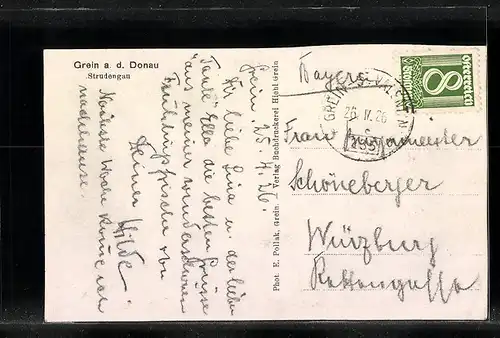 Grein a. d. Donau
Strudengau
Grein 25.4.26.
Für liebe Lina u. der lieben
Tante Ella die besten Grüsse
aus meiner wunderschönen
Frühlingsfrische von
Deiner Hilde.
Nächste Woche komme ich
nachhause.
Phot. E. Pollak, Grein. — Verlag Buchdruckerei Hiebl Grein
Bayern
GREIN
26 IV 26
8
Frau
Schöneberger
Würzburg